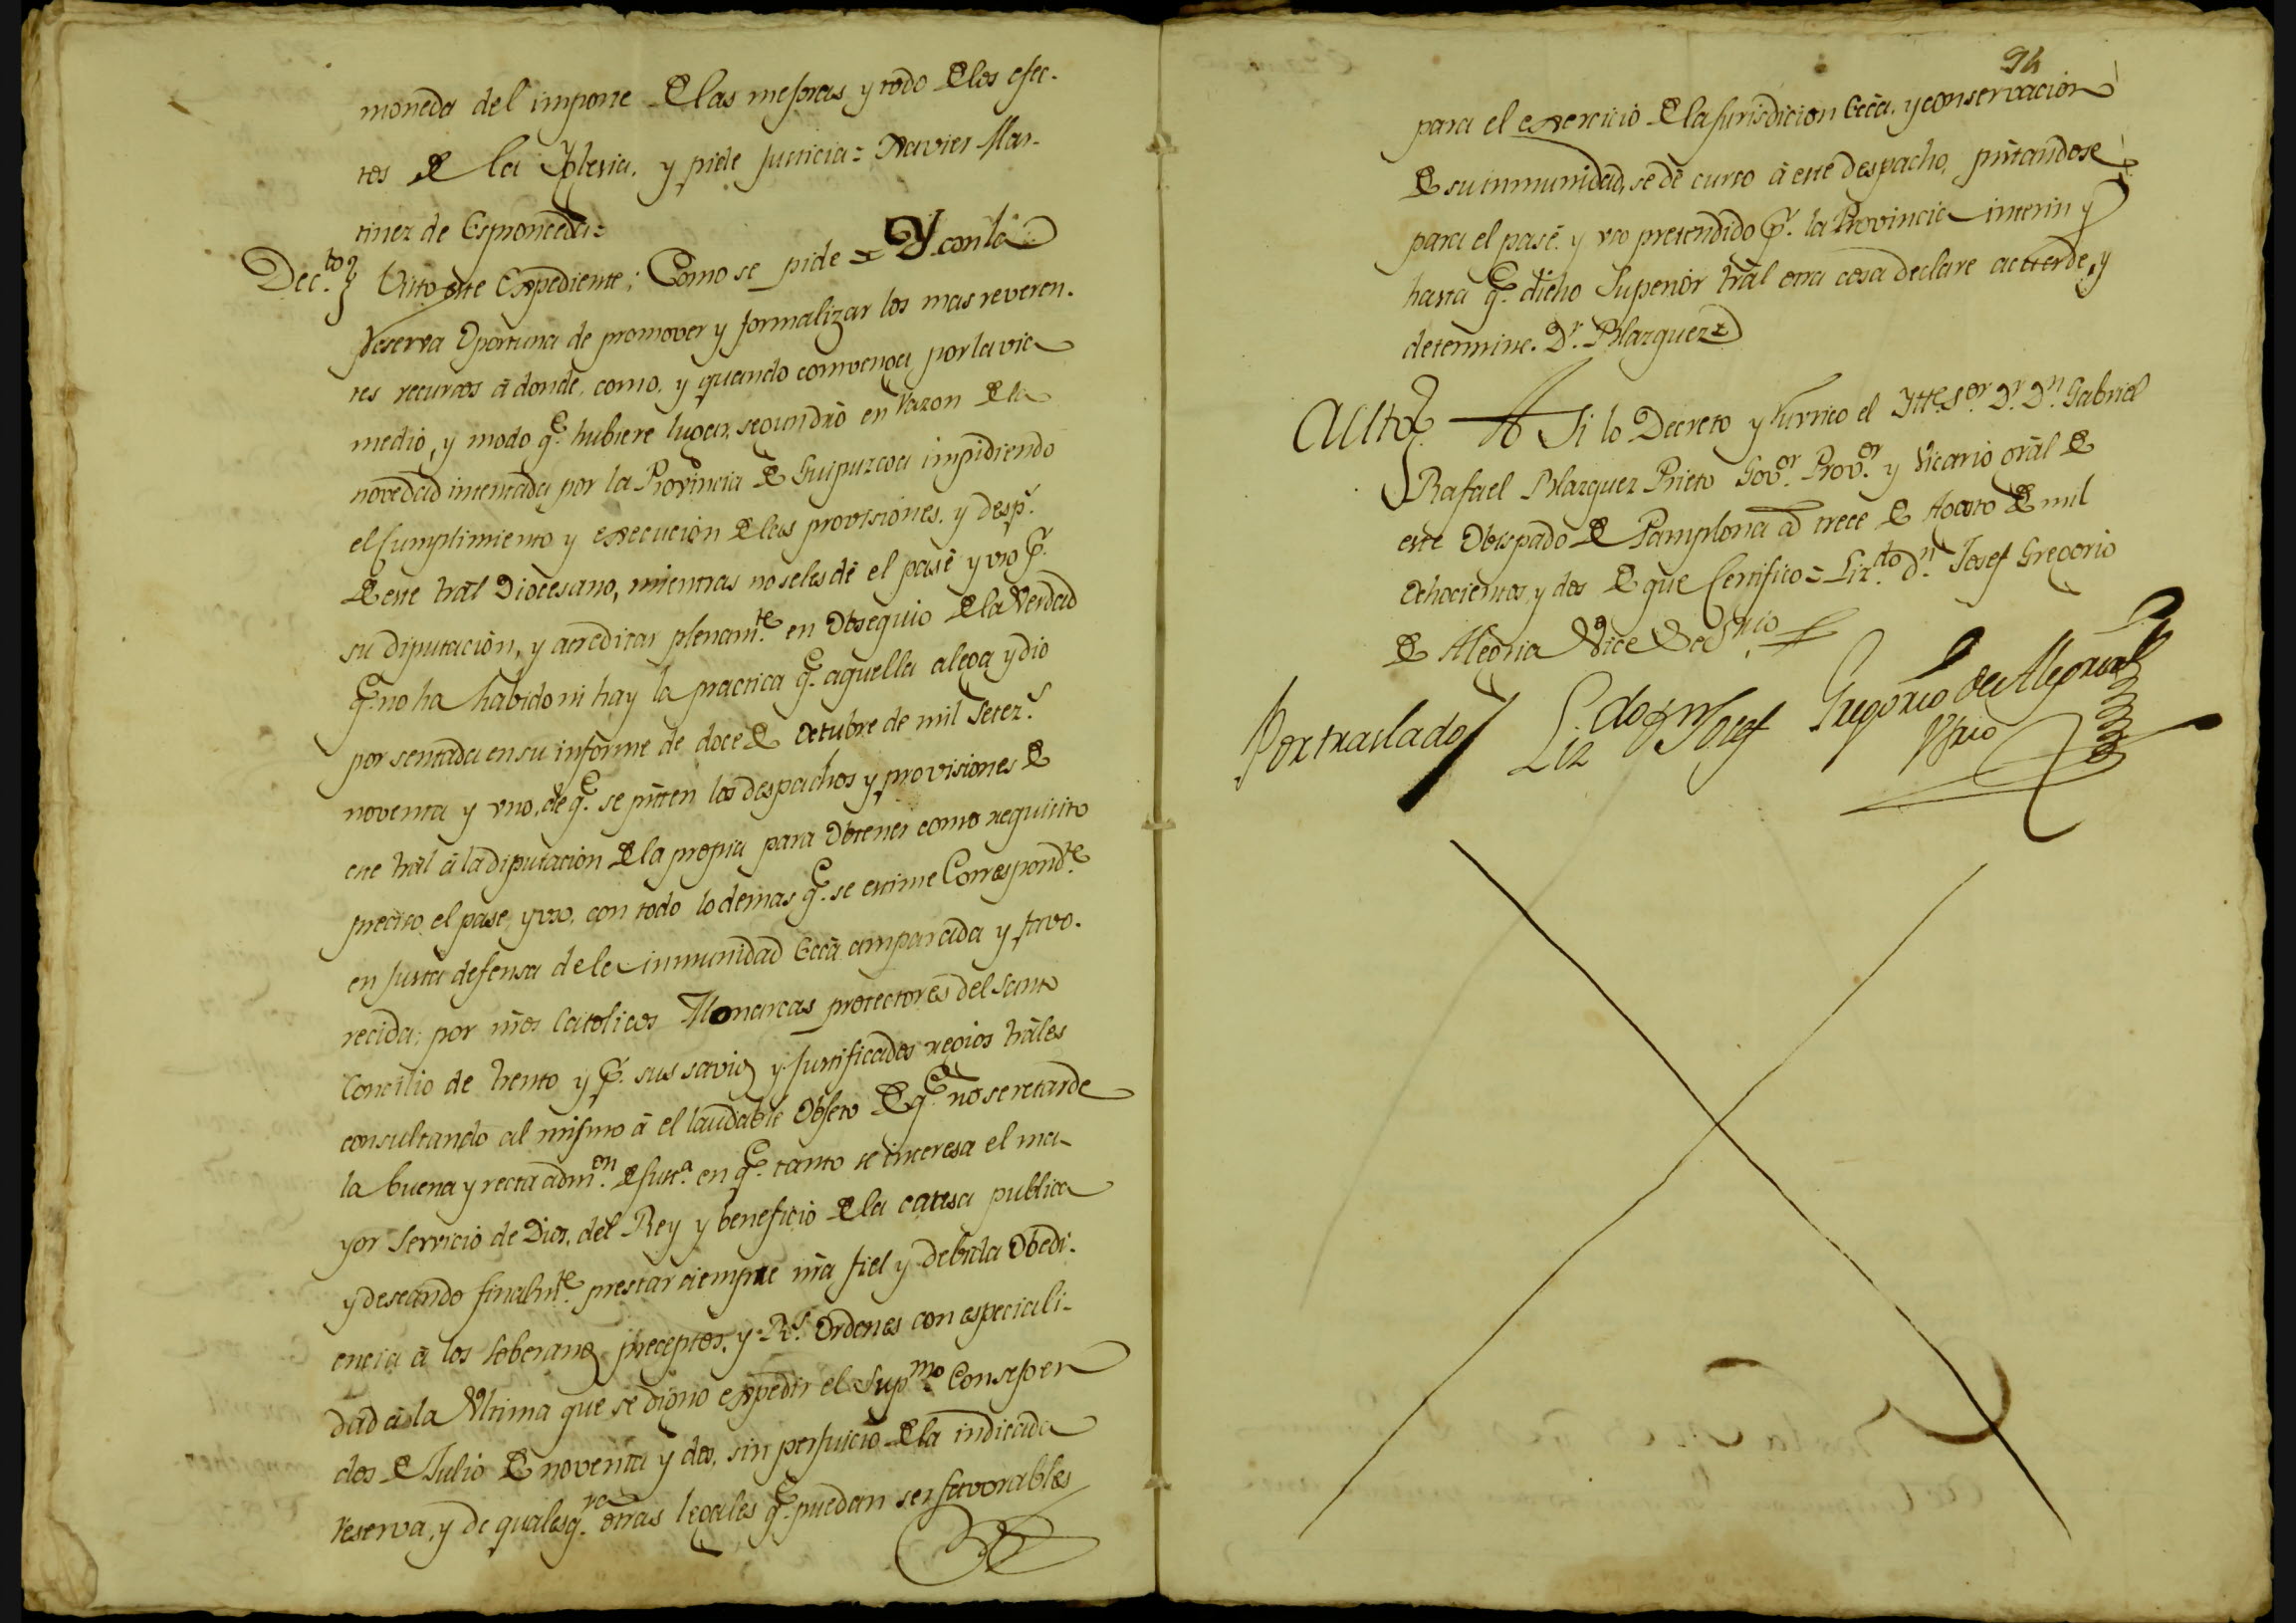 moneda del importe de las mejoras y todo de los efec-
tos de la Iglesia, y pide Justicia = Xavier Mar-
tinez de Espronceda =
Dec.to Visto este Expediente; Como se pide = Y con la
reserva Oportuna de promover y formalizar los mas reveren-
tes recursos á donde, como, y quando convenga por la via
medio, y modo q.e hubiere lugar, segundrõ en razon de la
novedad intentada por la Provincia de Guipuzcoa impidiendo
el Cumplimiento y execucion de las provisiones, y desp.s
de este trãl Diocesano, mientras no se les dé el pase y uso p.r
su diputacion, y acreditar plenam.te en Obsequio de la Verdad
q.e no ha habido ni hay la practica q.e aquella alega y dio
por sentada en su informe de doce de Octubre de mil Setez.s
noventa y uno, de q.e se pñten los despachos y provisiones de
este trãl á la diputacion de la propia para Obtener como requisito
preciso el pase, y uso, con todo lo demas q.e se estime Correspond.te
en Justa defensa de la inmunidad Eccã amparada y favo-
recida; por nr̃os Catolicos Monarcas protectores del Santo
Concilio de Trento y p.r sus savios y Justificados regios trãles
consultando al mismo á el laudable Objeto de q.e no se retarde
la buena y recta adm.on de Just.a en q.e tanto se interesa el ma-
yor Servicio de Dios, del Rey y beneficio de la causa publica
y deseando finalm.te prestar siempre nr̃a fiel y debida Obedi-
encia á los Soberanos preceptos, y R.s Ordenes con especiali-
dad á la Ultima que se digno expedir el Sup.mo Consejo en
dos de Julio de noventa y dos, sin perjuicio de la indicada
reserva, y de qualesq.ra otras legales q.e puedan ser favorables
94
para el exercicio de la Jurisdicion Eccã. y conservacion
de su inmunidad, se dé curso á este despacho, pñtandose
para el pase y uso pretendido p.r la Provincia interin y
hasta q.e dicho Superior trãl otra cosa declare acuerde, y
determine. D.r Blazquez =
Auto Asi lo Decreto y firmo el Ill.e S.or D.r D.n Gabriel
Rafael Blazquez Prieto Gov.or Prov.or y Vicario grãl de
este Obispado de Pamplona á trece de Agosto de mil
Ochocientos y dos de que Certifico = Liz.do D.n Josef Gregorio
de Alegria Vice Sec.rio
Por traslado Liz.do D.n Josef Gregorio de Alegria
V. Srio